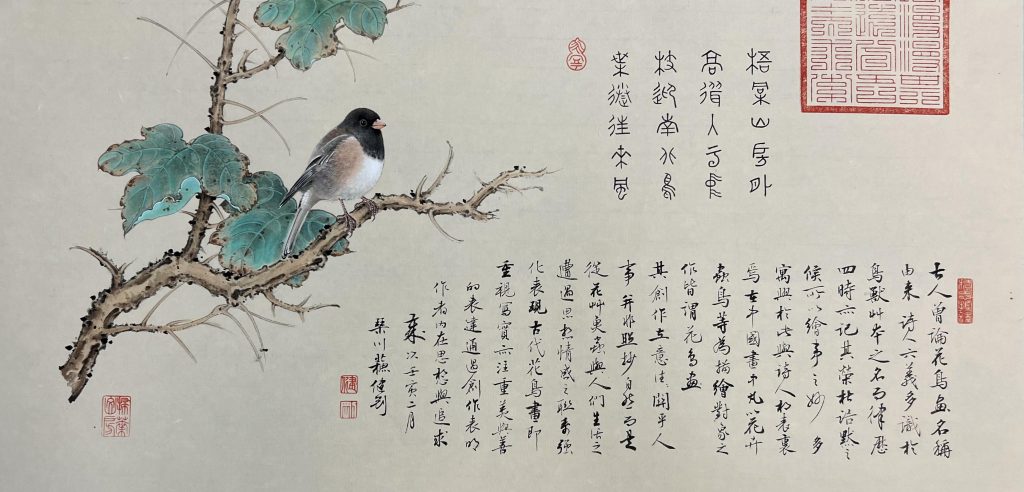 山房
高 人 長
枝迎南北鳥
葉送往來風
古人曾論花鳥畫名稱
由来詩人六義多識於
鳥獸艸木之名而律歷
四時亦記其榮枯語默之
候所以繪事之妙多
寓興於此與詩人相表裏
焉在中國畫中凡以花卉
蟲鳥等為描繪對象之
作皆謂花鳥畫
其創作立意往往關乎人
事并非照抄自然而是
從花艸 蟲與人們生活之
遭遇思想情感之聯系強
化表現古代花鳥畫即
重視寫實亦注重美與善
的表達通過創作表明
作者內在思想與追求
歲次壬寅二月
川蘇健